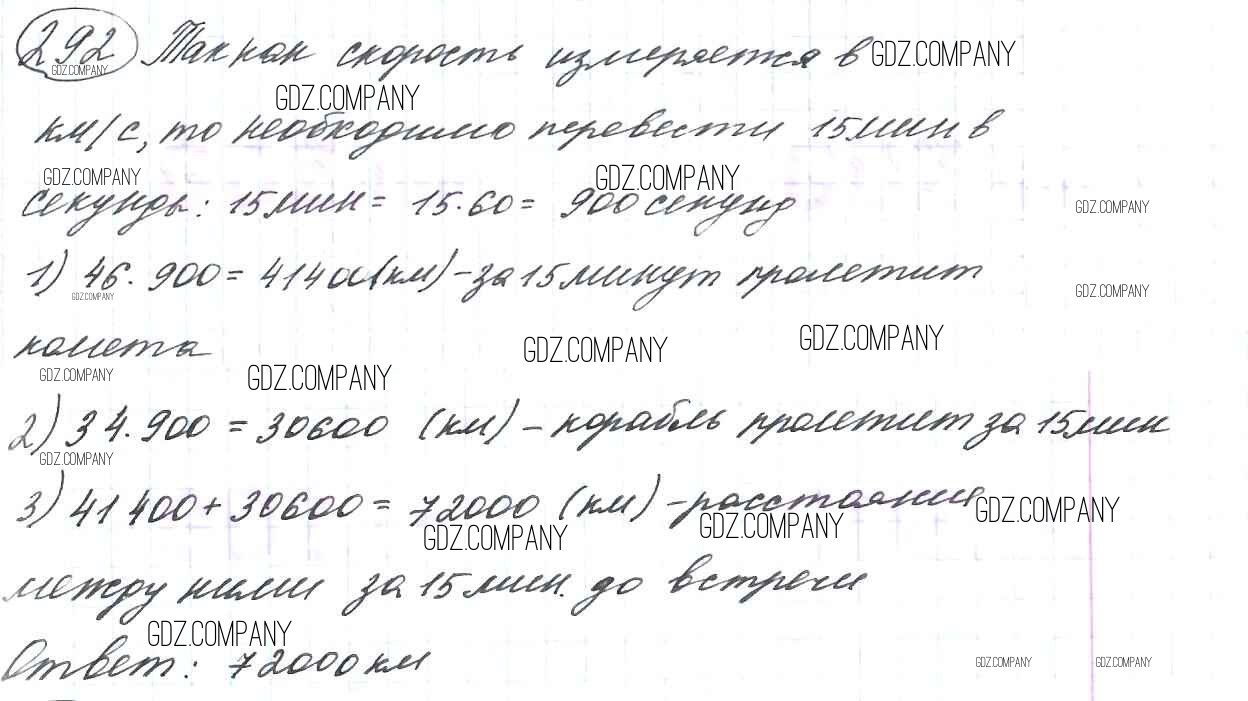 292 Так как скорость измеряется в GDZ.COMPANY
GDZ.COMPANY
GDZ.COMPANY
км/с, то необходимо перевести 15 мин в
GDZ.COMPANY GDZ.COMPANY
секунды: 15 мин = 15·60 = 900 секунд GDZ.COMPANY
1) 46·900 = 41400 (км) – за 15 минут пролетит
GDZ.COMPANY GDZ.COMPANY
комета GDZ.COMPANY GDZ.COMPANY
GDZ.COMPANY GDZ.COMPANY
2) 34·900 = 30600 (км) – корабль пролетит за 15 мин
GDZ.COMPANY
3) 41400 + 30600 = 72000 (км) – расстояния GDZ.COMPANY
GDZ.COMPANY GDZ.COMPANY
между ними за 15 мин. до встречи
GDZ.COMPANY
Ответ: 72000 км GDZ.COMPANY GDZ.COMPANY